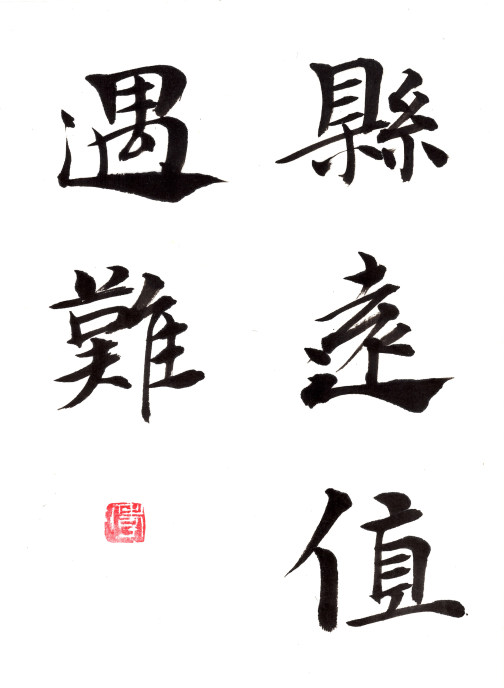 縣遠值
遇難